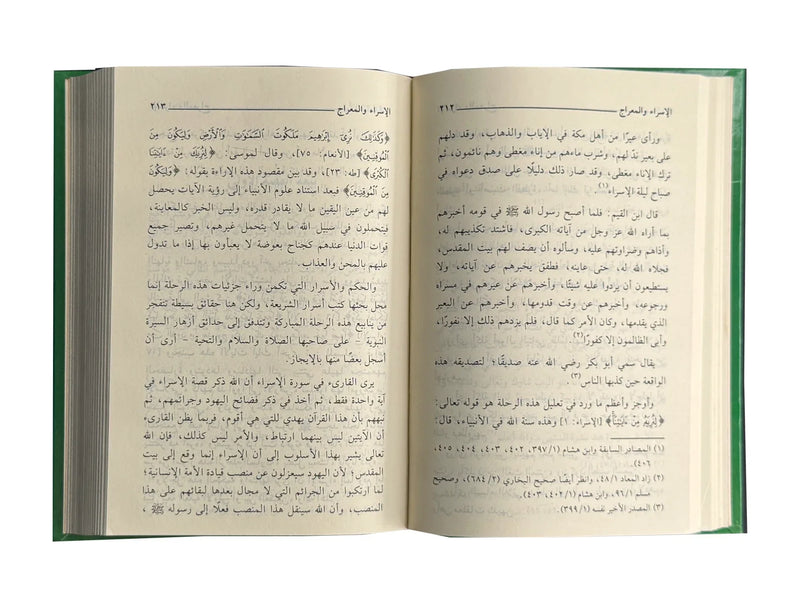 الإسراء والمعراج ٢١٢
ورأى عيرًا من أهل مكة في الإياب والذهاب، وقد دلهم
على بعير ندّ لهم، وشرب ماءهم من إناء مغطى وهم نائمون، ثم
ترك الإناء مغطى، وقد صار ذلك دليلًا على صدق دعواه في
صباح ليلة الإسراء(١).
قال ابن القيم: فلما أصبح رسول الله ﷺ في قومه أخبرهم
بما أراه الله عز وجل من آياته الكبرى، فاشتد تكذيبهم له،
وأذاهم وضراوتهم عليه، وسألوه أن يصف لهم بيت المقدس،
فجلاه الله له، حتى عاينه، فطفق يخبرهم عن آياته، ولا
يستطيعون أن يردوا عليه شيئًا، وأخبرهم عن عيرهم في مسراه
ورجوعه، وأخبرهم عن وقت قدومها، وأخبرهم عن البعير
الذي يقدمها، وكان الأمر كما قال، فلم يزدهم ذلك إلا نفورًا،
وأبى الظالمون إلا كفورًا(٢).
يقال سمي أبو بكر رضي الله عنه صديقًا؛ لتصديقه هذه
الواقعة حين كذبها الناس(٣).
وأوجز وأعظم ما ورد في تعليل هذه الرحلة هو قوله تعالى:
﴿لِنُرِيَهُ مِنْ ءَايَٰتِنَا﴾ [الإسراء: ١] وهذه سنة الله في الأنبياء، قال:
(١) المصادر السابقة وابن هشام ٣٩٧/١، ٤٠٢، ٤٠٣، ٤٠٤، ٤٠٥،
٤٠٦.
(٢) زاد المعاد ٤٨/١، وانظر أيضًا صحيح البخاري (٦٨٤/٢)، وصحيح
مسلم ٩٦/١، وابن هشام (٤٠٢/١، ٤٠٣).
(٣) المصدر الأخير نفسه (٣٩٩/١).
الإسراء والمعراج ٢١٣
﴿وَكَذَٰلِكَ نُرِىٓ إِبْرَٰهِيمَ مَلَكُوتَ السَّمَٰوَٰتِ وَالْأَرْضِ وَلِيَكُونَ مِنَ
الْمُوقِنِينَ﴾ [الأنعام: ٧٥]، وقال لموسى: ﴿لِنُرِيَكَ مِنْ ءَايَٰتِنَا
الْكُبْرَى﴾ [طه: ٢٣]، وقد بين مقصود هذه الإراءة بقوله: ﴿وَلِيَكُونَ
مِنَ الْمُوقِنِينَ﴾ فبعد استناد علوم الأنبياء إلى رؤية الآيات يحصل
لهم من عين اليقين ما لا يقادر قدره، وليس الخبر كالمعاينة،
فيتحملون في سبيل الله ما لا يتحمل غيرهم، وتصير جميع
قوات الدنيا عندهم كجناح بعوضة لا يعبأون بها إذا ما تدول
عليهم بالمحن والعذاب.
والحكم والأسرار التي تكمن وراء جزئيات هذه الرحلة إنما
محل بحثها كتب أسرار الشريعة، ولكن هنا حقائق بسيطة تتفجر
من ينابيع هذه الرحلة المباركة وتتدفق إلى حدائق أزهار السيرة
النبوية – على صاحبها الصلاة والسلام والتحية – أرى أن
أسجل بعضًا منها بالإيجاز.
يرى القارىء في سورة الإسراء أن الله ذكر قصة الإسراء في
آية واحدة فقط، ثم أخذ في ذكر فضائح اليهود وجرائمهم، ثم
نبههم بأن هذا القرآن يهدي للتي هي أقوم، فربما يظن القارىء
أن الآيتين ليس بينهما ارتباط، والأمر ليس كذلك، فإن الله
تعالى يشير بهذا الأسلوب إلى أن الإسراء إنما وقع إلى بيت
المقدس؛ لأن اليهود سيعزلون عن منصب قيادة الأمة الإنسانية؛
لما ارتكبوا من الجرائم التي لا مجال بعدها لبقائهم على هذا
المنصب، وأن الله سينقل هذا المنصب فعلًا إلى رسوله ﷺ،